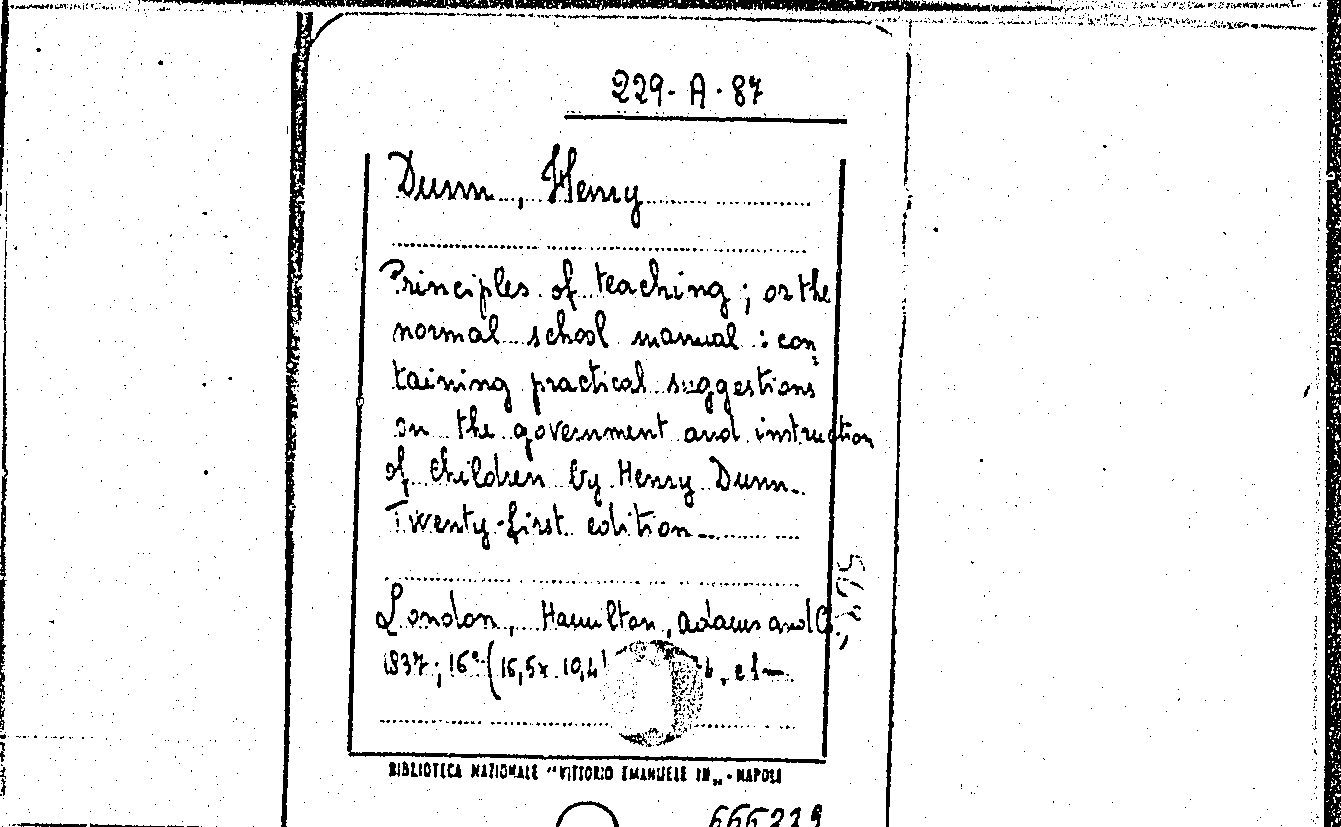 229-A-87
Dunn, Henry
Principles of teaching; or the
normal school manual: con
taining practical suggestions
on the government and instruction
of children by Henry Dunn.
Twenty-first edition
London, Hamilton, Adams and C.,
1837; 16° (16,5x10,4
BIBLIOTECA NAZIONALE "VITTORIO EMANUELE III„ - NAPOLI
666239